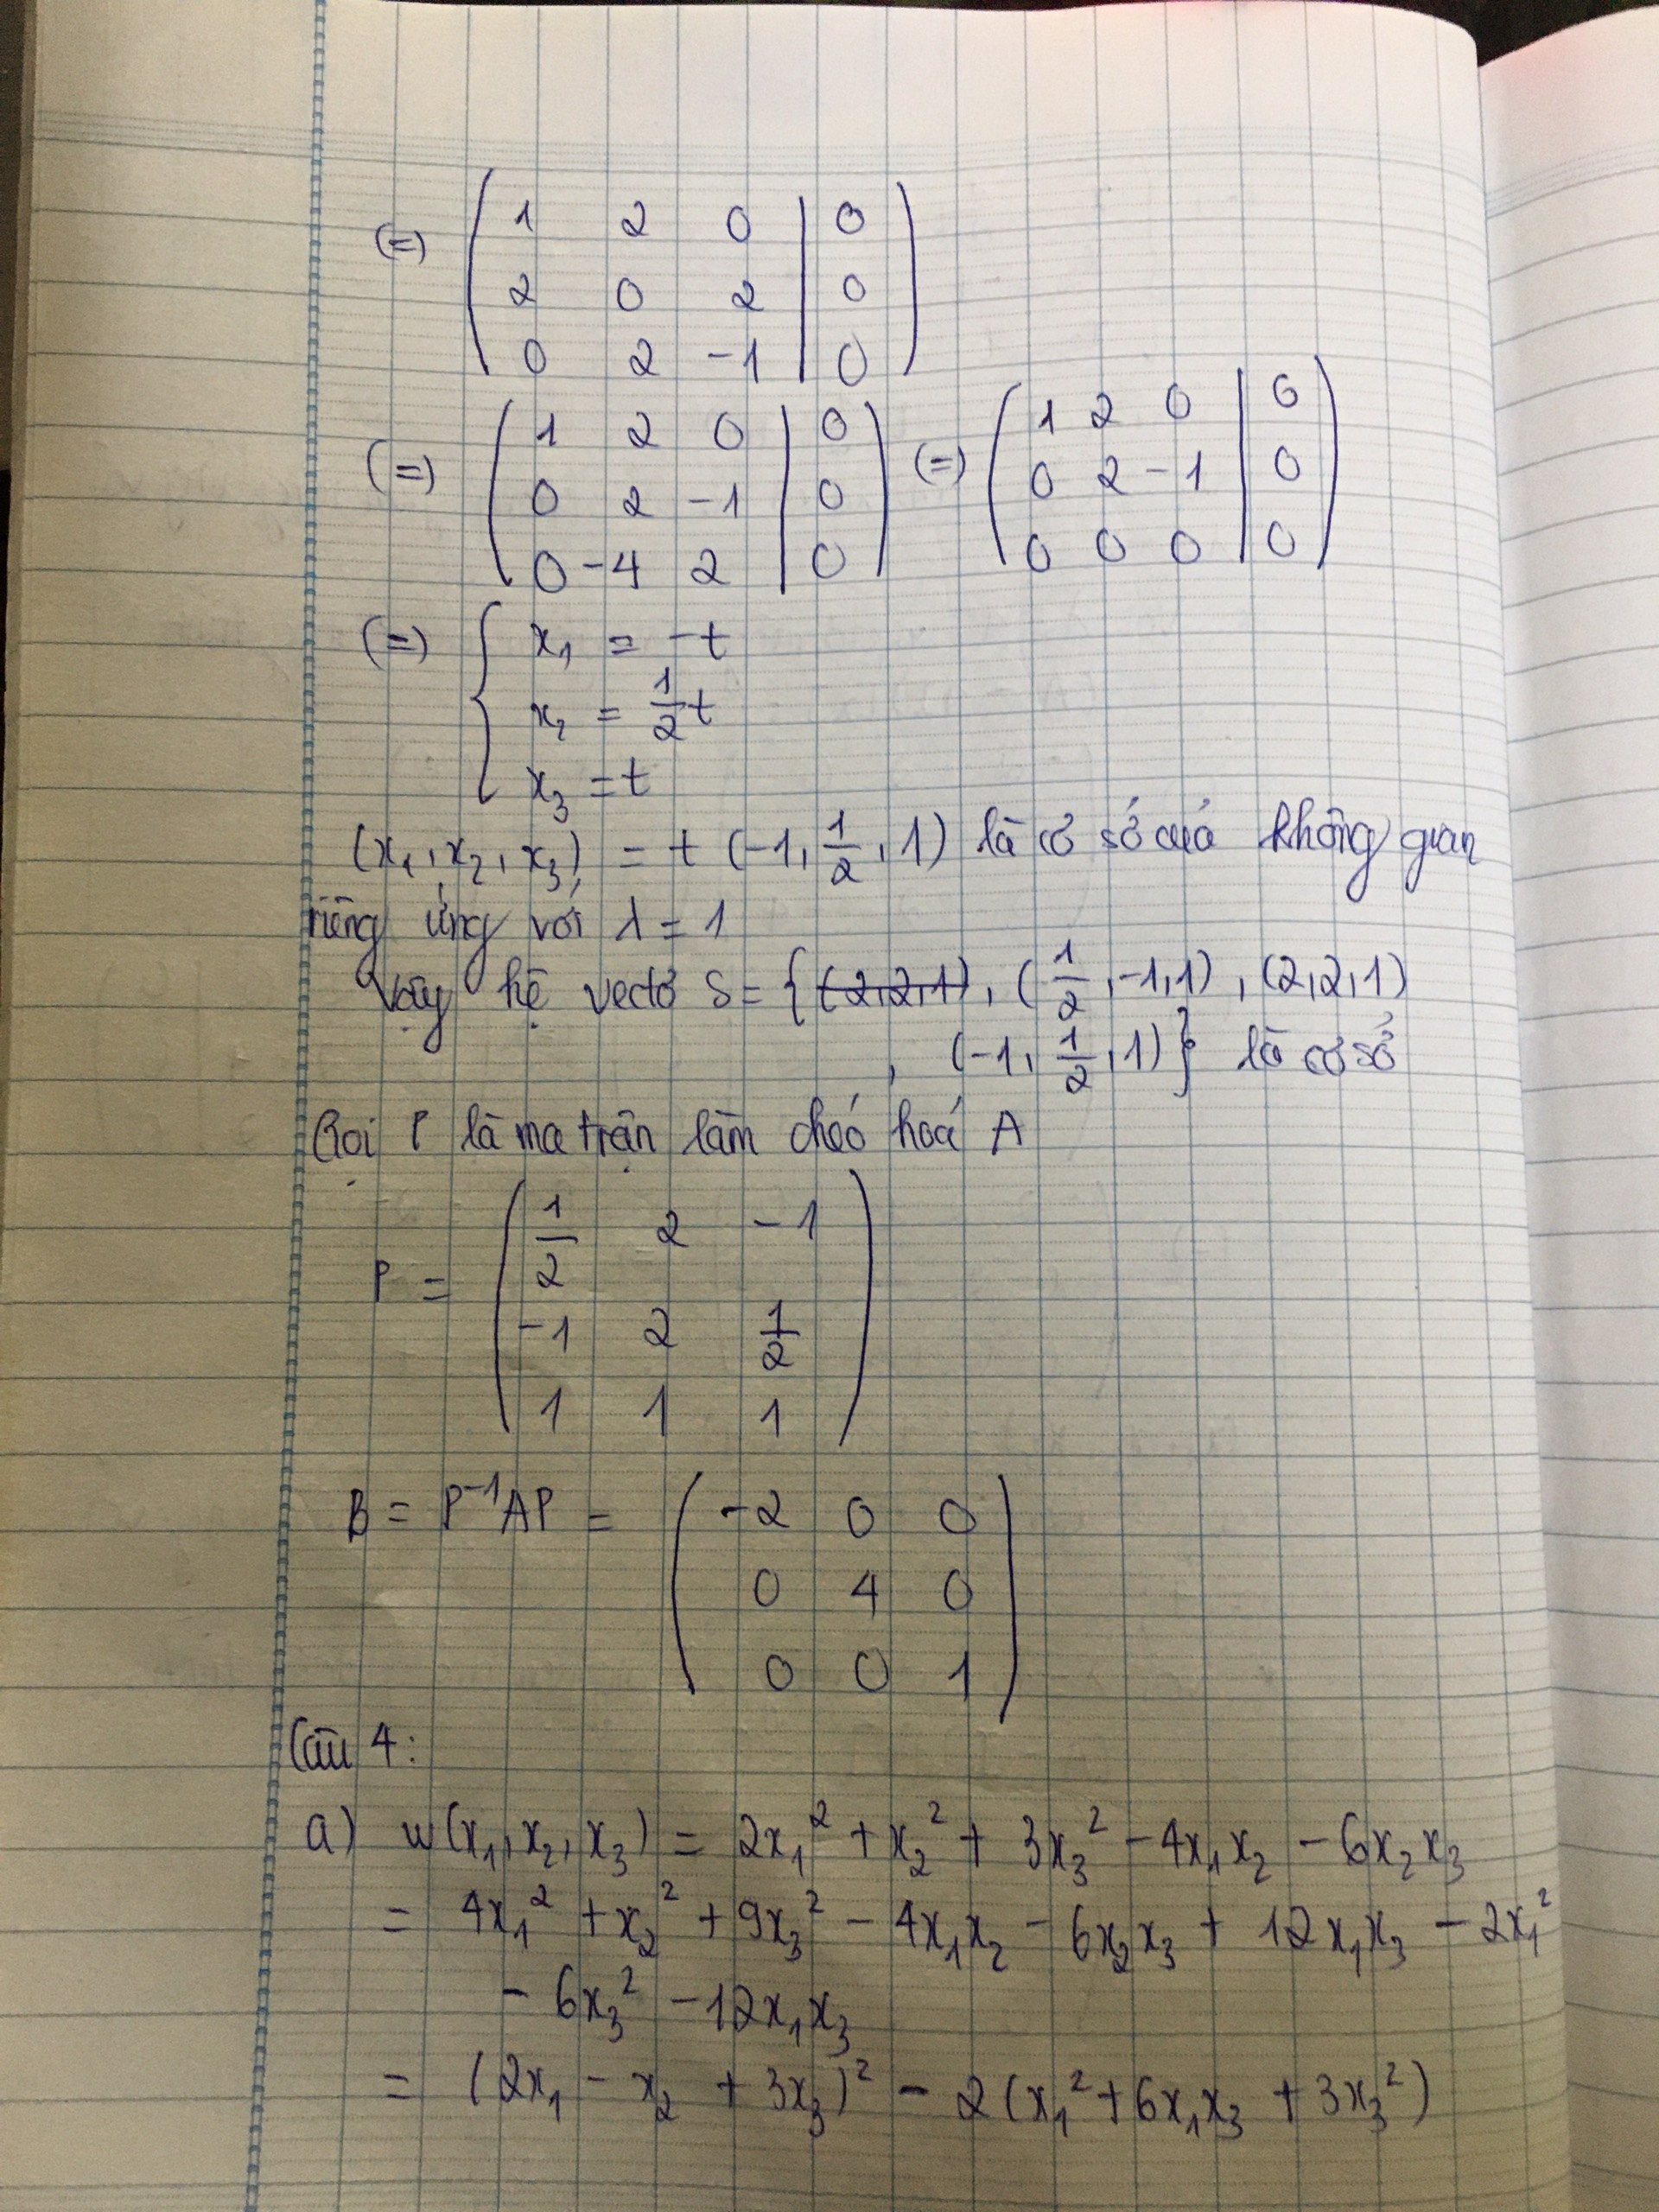 (=) ( 1 2 0 | 0 )
( 2 0 2 | 0 )
( 0 2 -1 | 0 )
(=) ( 1 2 0 | 0 ) (=) ( 1 2 0 | 0 )
( 0 2 -1 | 0 ) ( 0 2 -1 | 0 )
( 0 -4 2 | 0 ) ( 0 0 0 | 0 )
(=) { x₁ = -t
x₂ = 1/2 t
x₃ = t
(x₁, x₂, x₃) = t (-1, 1/2, 1) là cơ sở của không gian
riêng ứng với λ = 1
Vậy hệ vectơ S = { (2,2,1), (1/2, -1, 1), (2,2,1)
, (-1, 1/2, 1)} là cơ sở
Gọi P là ma trận làm chéo hoá A
P = ( 1/2 2 -1 )
( -1 2 1/2 )
( 1 1 1 )
B = P⁻¹AP = ( -2 0 0 )
( 0 4 0 )
( 0 0 1 )
Câu 4:
a) w(x₁, x₂, x₃) = 2x₁² + x₂² + 3x₃² - 4x₁x₂ - 6x₂x₃
= 4x₁² + x₂² + 9x₃² - 4x₁x₂ - 6x₂x₃ + 12x₁x₃ - 2x₁²
- 6x₃² - 12x₁x₃
= (2x₁ - x₂ + 3x₃)² - 2(x₁² + 6x₁x₃ + 3x₃²)